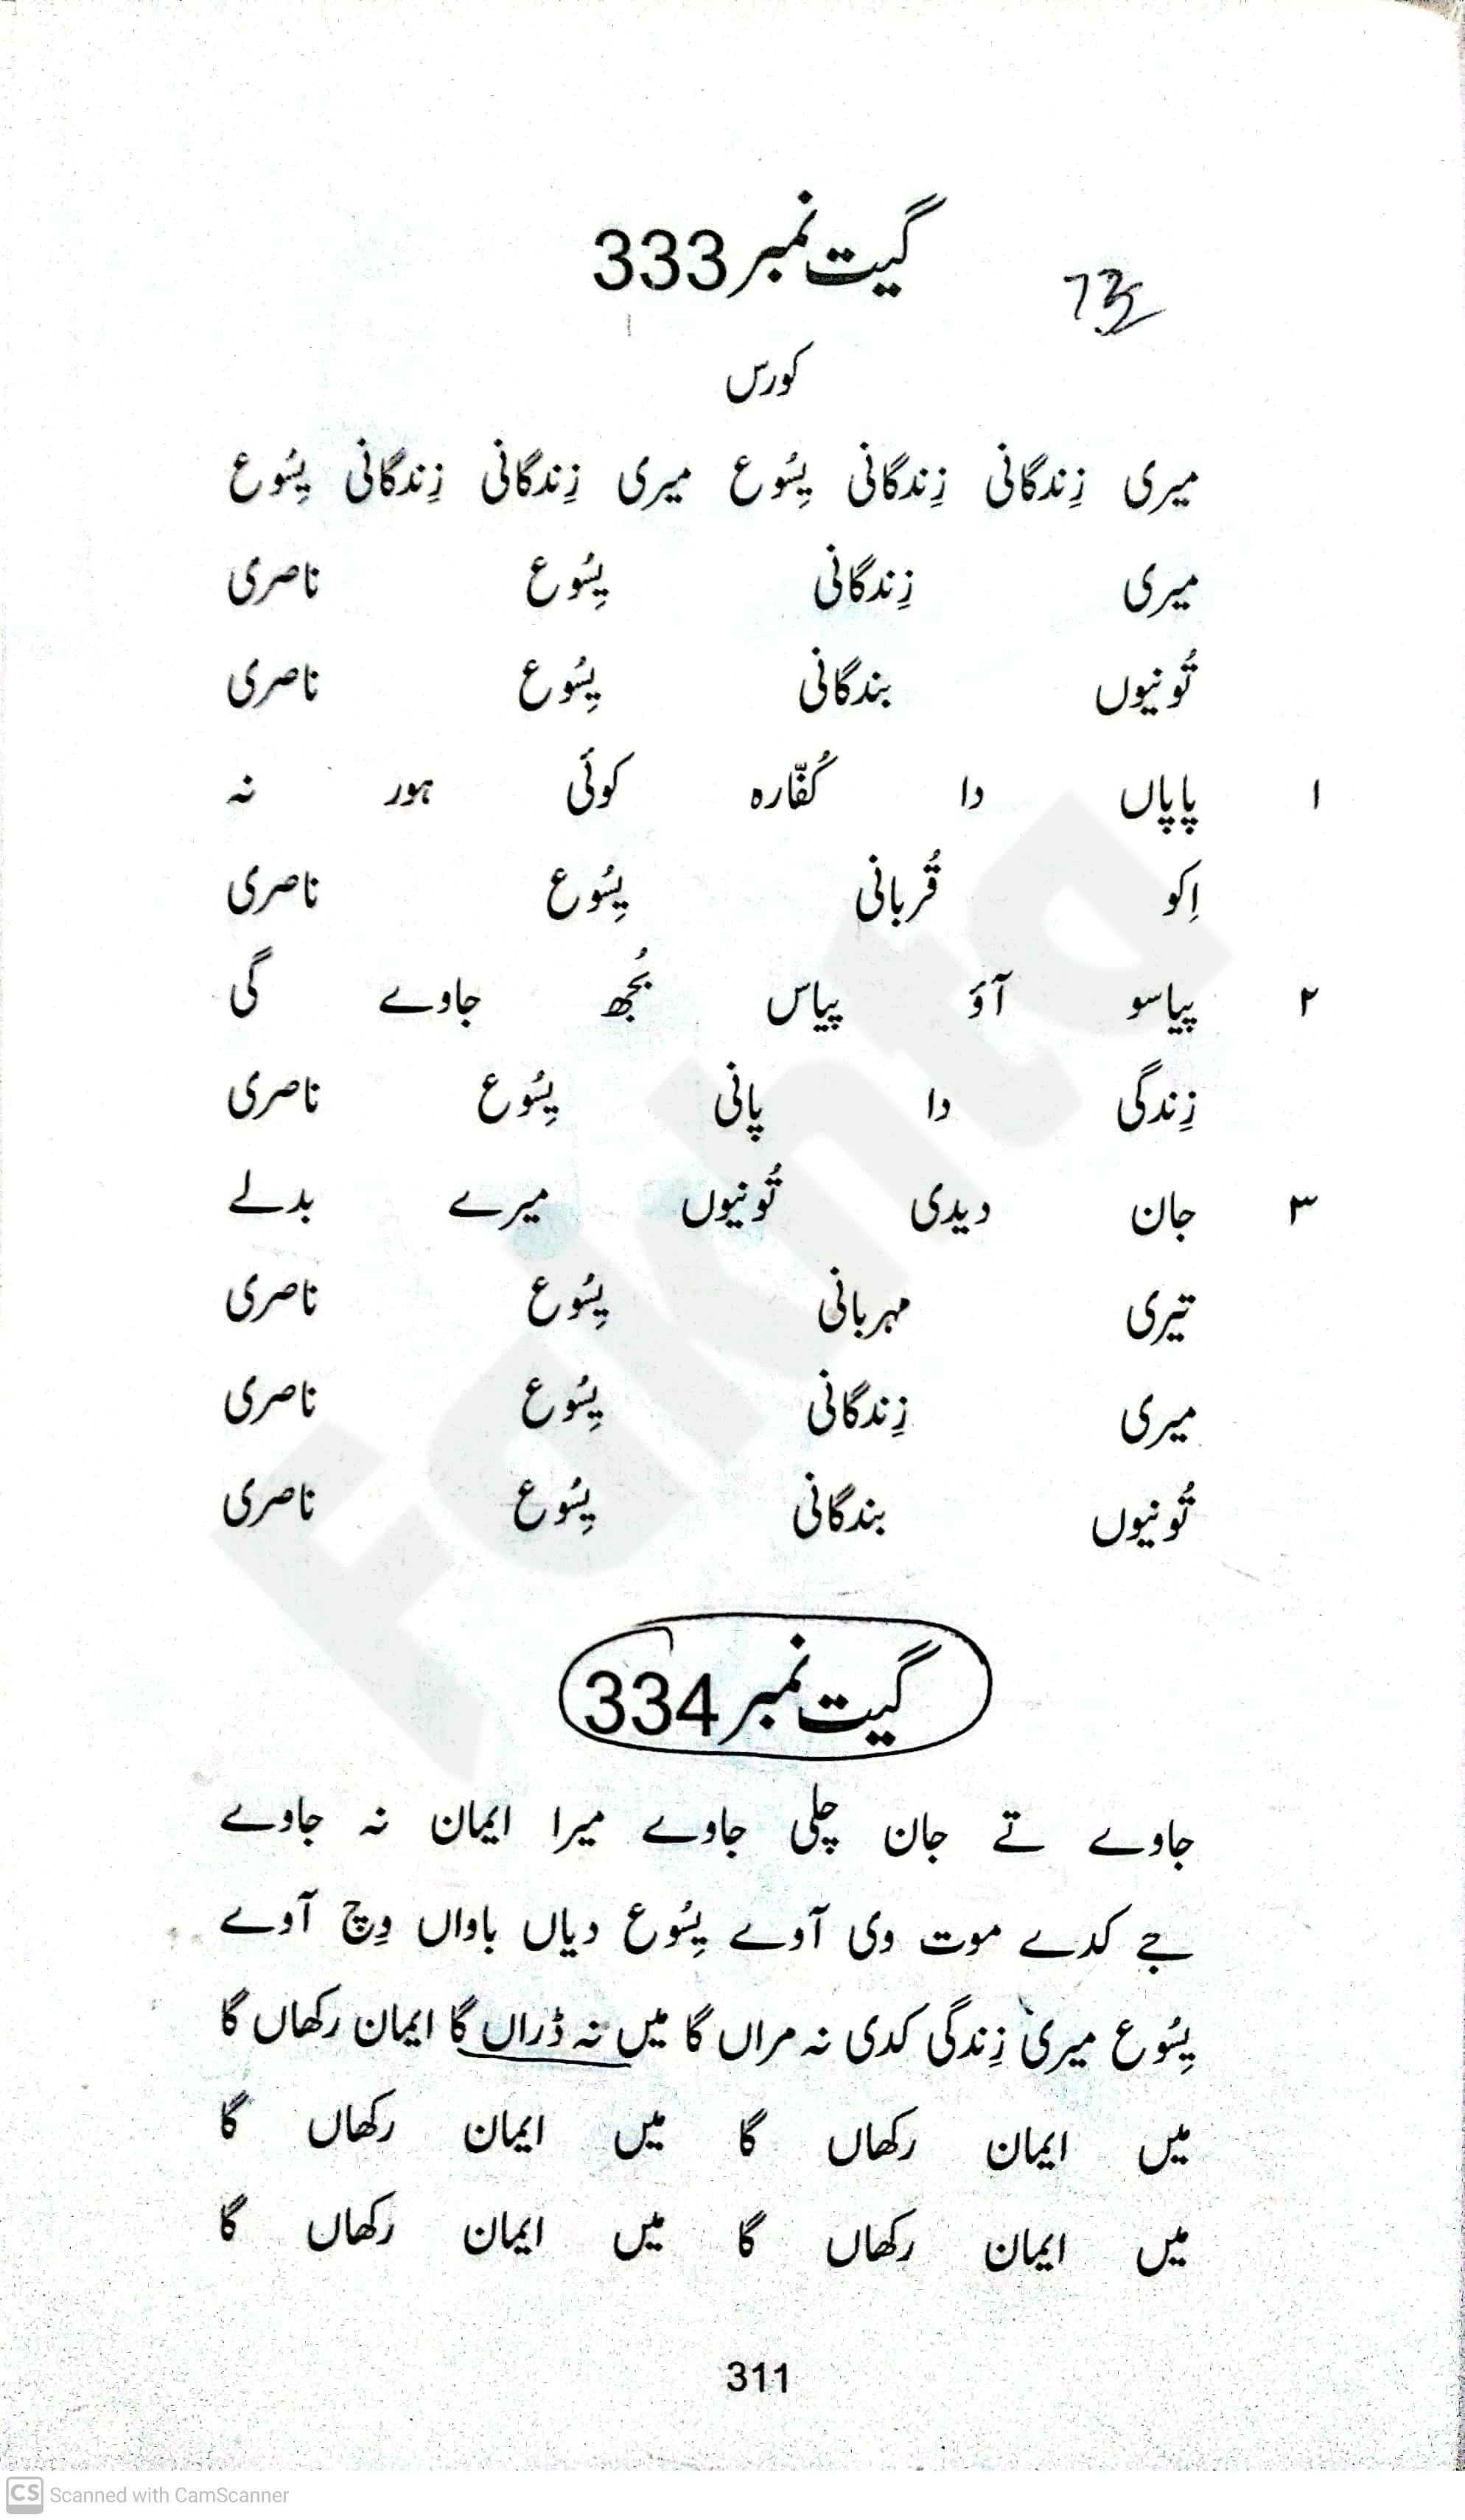 گیت نمبر 333
کورس
میری زِندگانی زِندگانی یِسُوع میری زِندگانی زِندگانی یِسُوع
میری زِندگانی یِسُوع ناصری
تُونیوں بندگانی یِسُوع ناصری
۱ پاپاں دا کُفّارہ کوئی ہور نہ
اِکو قُربانی یِسُوع ناصری
۲ پیاسو آؤ پیاس بُجھ جاوے گی
زِندگی دا پانی یِسُوع ناصری
۳ جان دیدی تُونیوں میرے بدلے
تیری مہربانی یِسُوع ناصری
میری زِندگانی یِسُوع ناصری
تُونیوں بندگانی یِسُوع ناصری
گیت نمبر 334
جاوے تے جان چلی جاوے میرا ایمان نہ جاوے
جے کدے موت وی آوے یِسُوع دیاں باواں وِچ آوے
یِسُوع میری زِندگی کدی نہ مراں گا میں نہ ڈراں گا ایمان رکھاں گا
میں ایمان رکھاں گا میں ایمان رکھاں گا
میں ایمان رکھاں گا میں ایمان رکھاں گا
311
Fakhta
CS Scanned with CamScanner